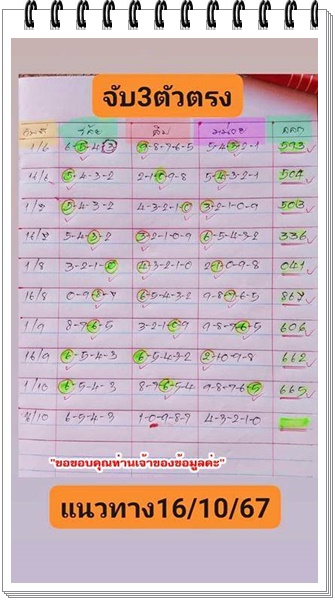 จับ3ตัวตรง
วันที่ ร้อย สิบ หน่วย ออก
1/6 6-5-4-3 9-8-7-6-5 5-4-3-2-1 593
16/6 5-4-3-2 2-1-0-9-8 5-4-3-2-1 504
1/7 5-4-3-2 4-3-2-1-0 3-2-1-0-9 503
16/7 5-4-3-2 3-2-1-0-9 6-5-4-3-2 336
1/8 3-2-1-0 4-3-2-1-0 2-1-0-9-8 041
16/8 0-9-8-7 6-5-4-3-2 9-8-7-6-5 867
1/9 8-7-6-5 3-2-1-0-9 9-8-7-6-5 606
16/9 6-5-4-3 6-5-4-3-2 2-1-0-9-8 662
1/10 6-5-4-3 8-7-6-5-4 9-8-7-6-5 665
16/10 6-5-4-3 1-0-9-8-7 4-3-2-1-0
"ขอขอบคุณท่านเจ้าของข้อมูลค่ะ"
แนวทาง16/10/67